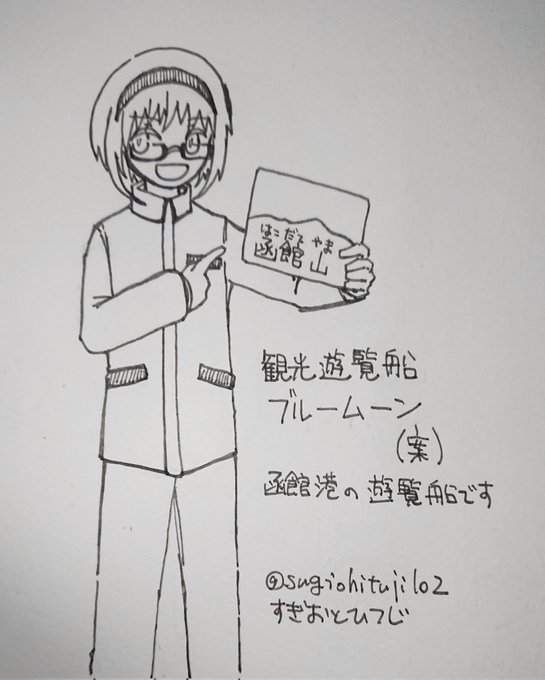 はこだて やま
函館山
観光遊覧船
ブルームーン
(案)
函館港の遊覧船です
@sugiohituji102
すぎおとひつじ